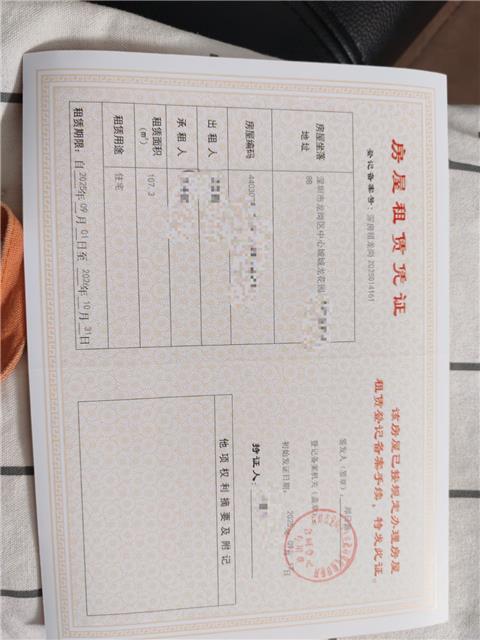 房屋租赁凭证
登记备案号：深房租龙岗 2025014161
房屋坐落地址
深圳市龙岗区中心城城龙花园
房屋编码
44030
出租人
承租人
租赁面积（㎡）
107.3
租赁用途
住宅
租赁期限：自2025年09月01日至2026年10月31日
该房屋已按规定办理房屋
租赁登记备案手续，特发此证。
签发人（签章）：
登记备案机关（盖章）
初始发证日期：2025年09月
持证人：
他项权利摘要及附记